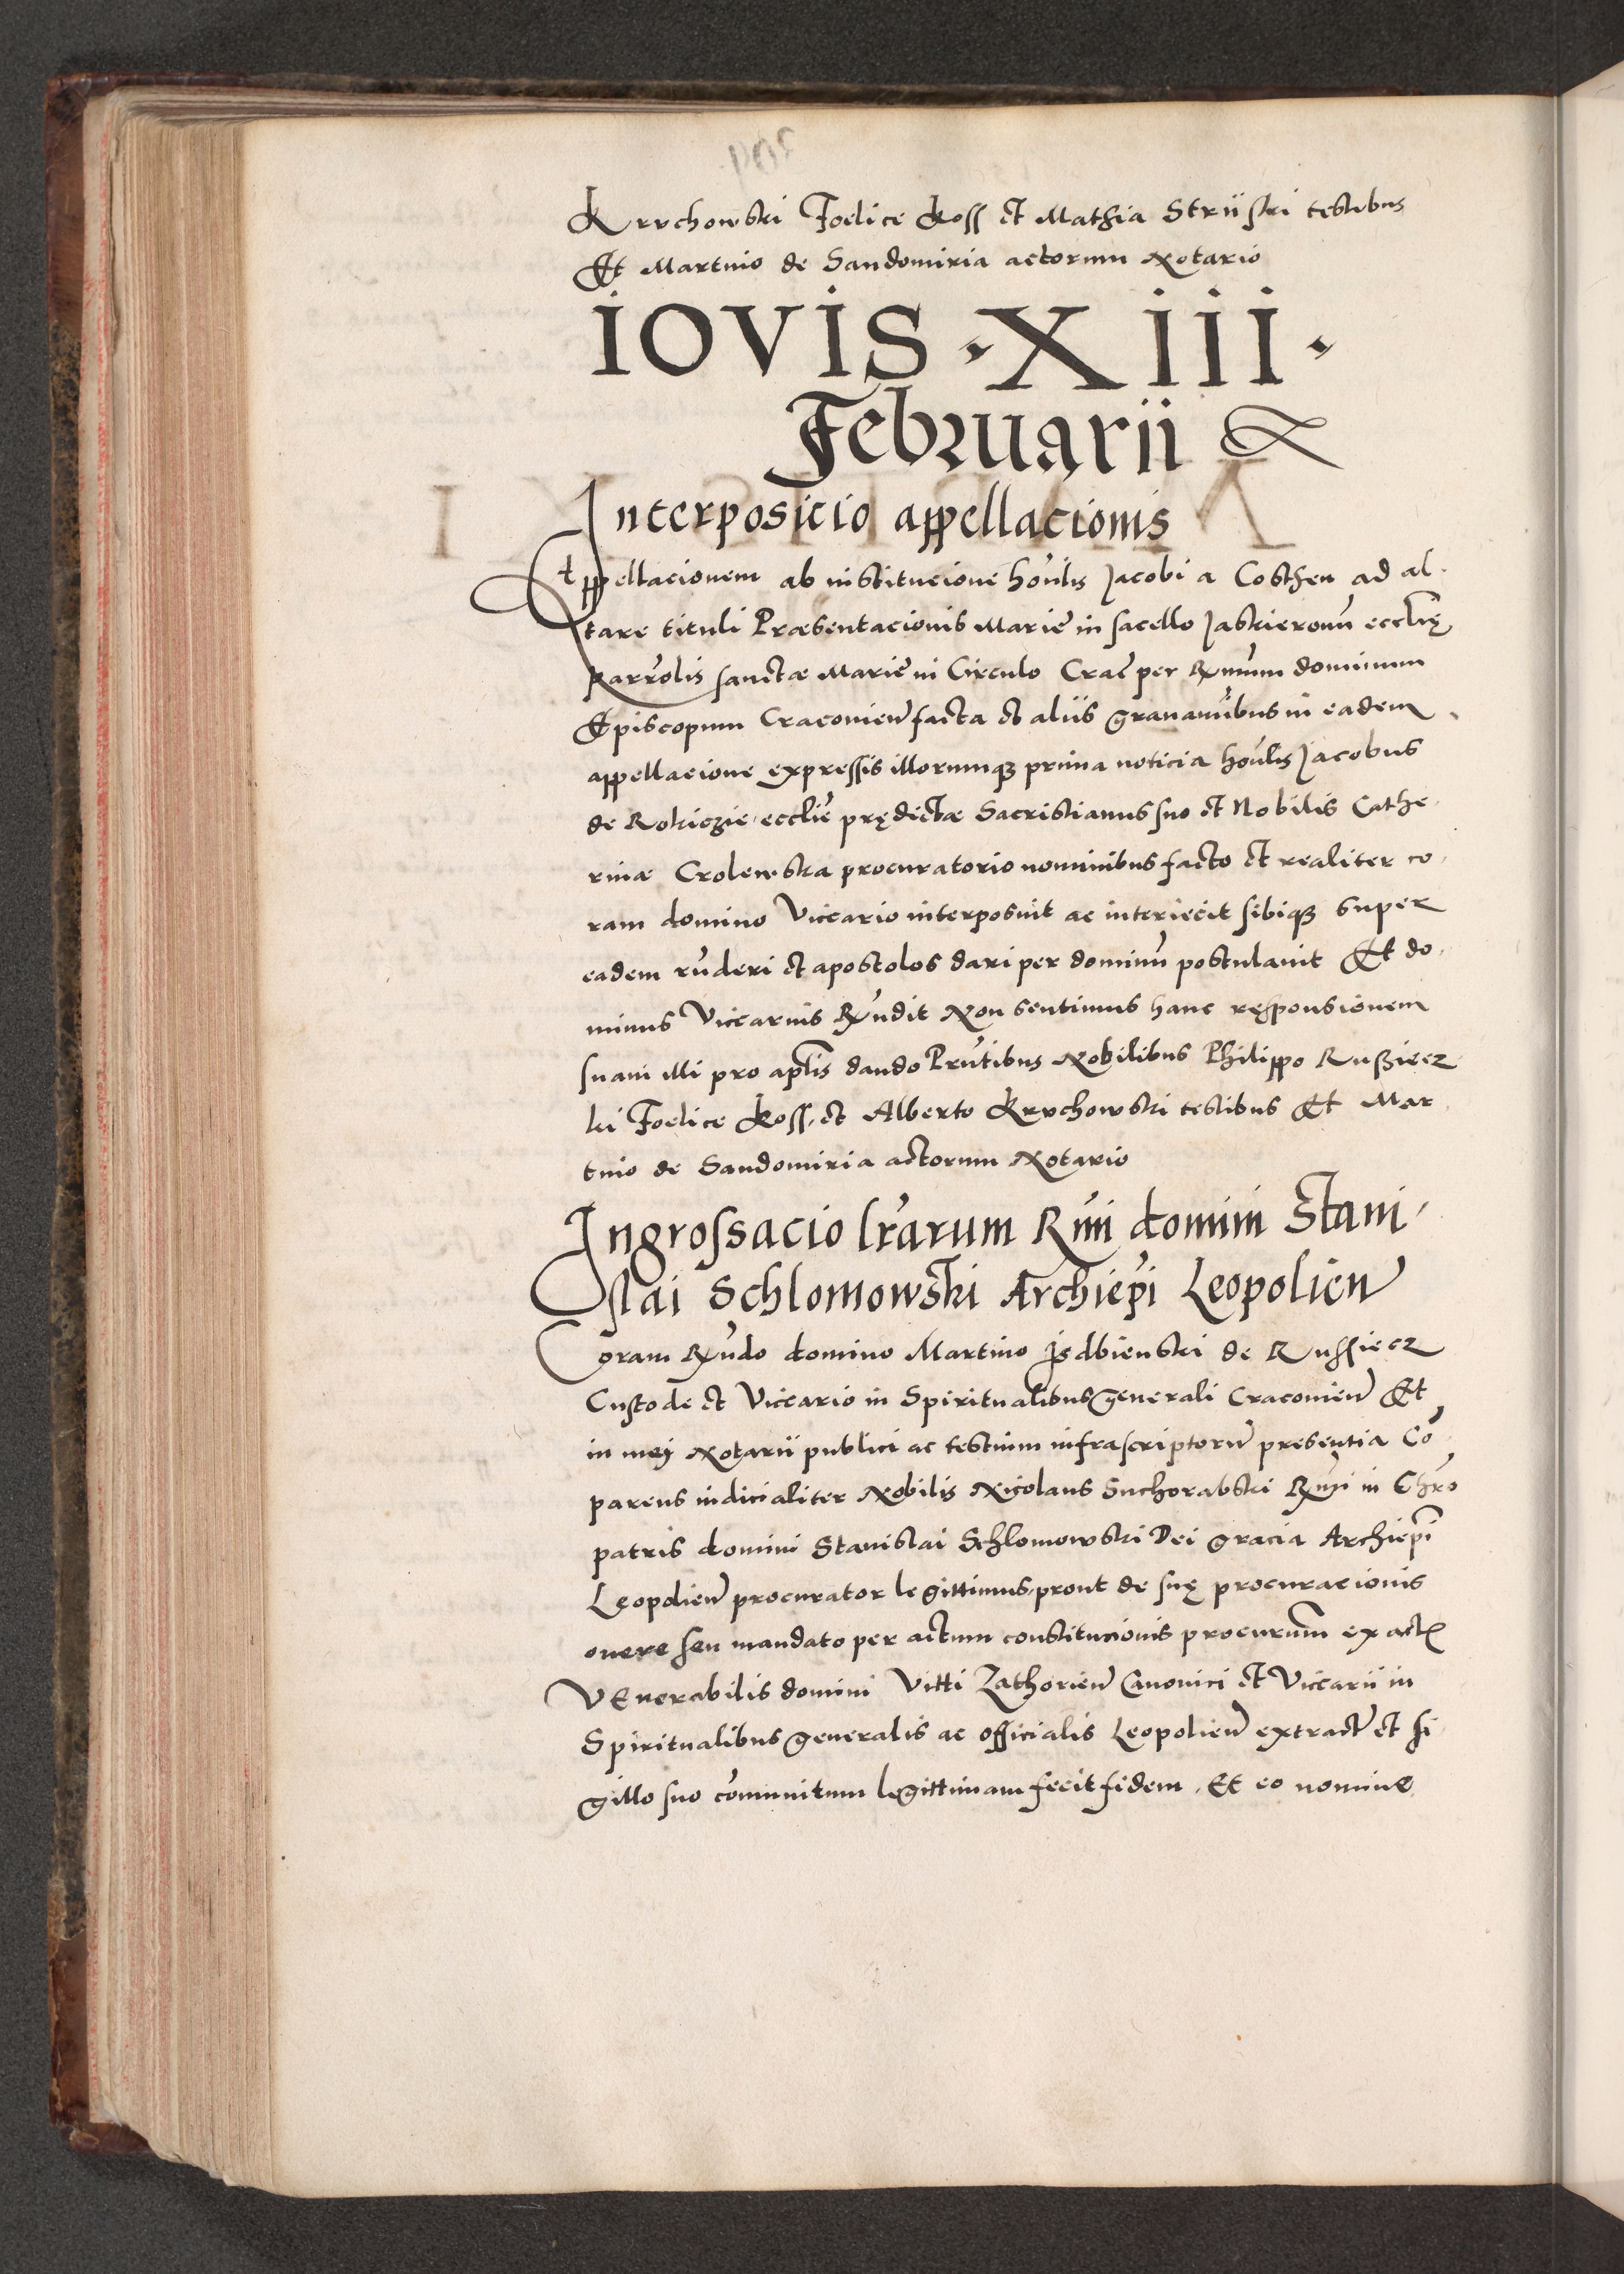 Krvchowski Foelice Koss et Mathia Strÿski testibus
Et Martino de Sandomiria actorum Notario
iovis · Xiii ·
Februarii
Interposicio appellacionis
Appellacionem ab institucione hon̄lis Jacobi a Costhen ad al-
tare tituli Præsentacionis Marie in sacello Jaskieronū eccl̄ię
parr̄olis sanctæ Marie in Circulo Crac̄ per R̄mum dominum
Episcopum Cracovien̄ facta et aliis gravamībus in eadem
appellacione expressis illorumqꝫ prima noticia hon̄lis Jacobus
de Rokiczie eccl̄ie prędictæ Sacristianus suo et Nobilis Cathe-
rinæ Crolewska procuratorio nominibus facto et realiter co-
ram domino Vicęario interposuit ac interiecit sibiqꝫ super
eadem r̄nderi et apostolos dari per dominū postulavit Et do-
minus Vicearius R̄ndit Non sentimus hanc responsionem
suam illi pro ap̄lis dando Pr̄ntibus Nobilibus Philippo Russiecz-
ki Foelice Koss et Alberto Krvchowski testibus Et Mar-
tino de Sandomiria actorum Notario
Ingrossacio lr̄arum R̄mi domini Stani-
slai Schlomowski Archiep̄i Leopolien̄
Coram R̄ndo domino Martino Jsdbienski de Russiecz
Custode et Vicęario in Spiritualibus generali Cracovien̄ Et
in mej Notarii publici ac testium infrascriptorū presentia Cō-
parens iudicialiter Nobilis Nicolaus Suchorabski R̄mi in Chr̄o
patris domini Stanislai Schlomowski Dei gracia Archiep̄i
Leopolien̄ procurator legittimus prout de suę procuracionis
onere seu mandato per actum constitucionis procur̄um ex actis
VEnerabilis domini Vitti Zathorien̄ Canonici et Vicęarii in
Spiritualibus generalis ac officialis Leopolien̄ extract̄ et si-
gillo suo com̄unitum legittimam fecit fidem. Et eo nomine